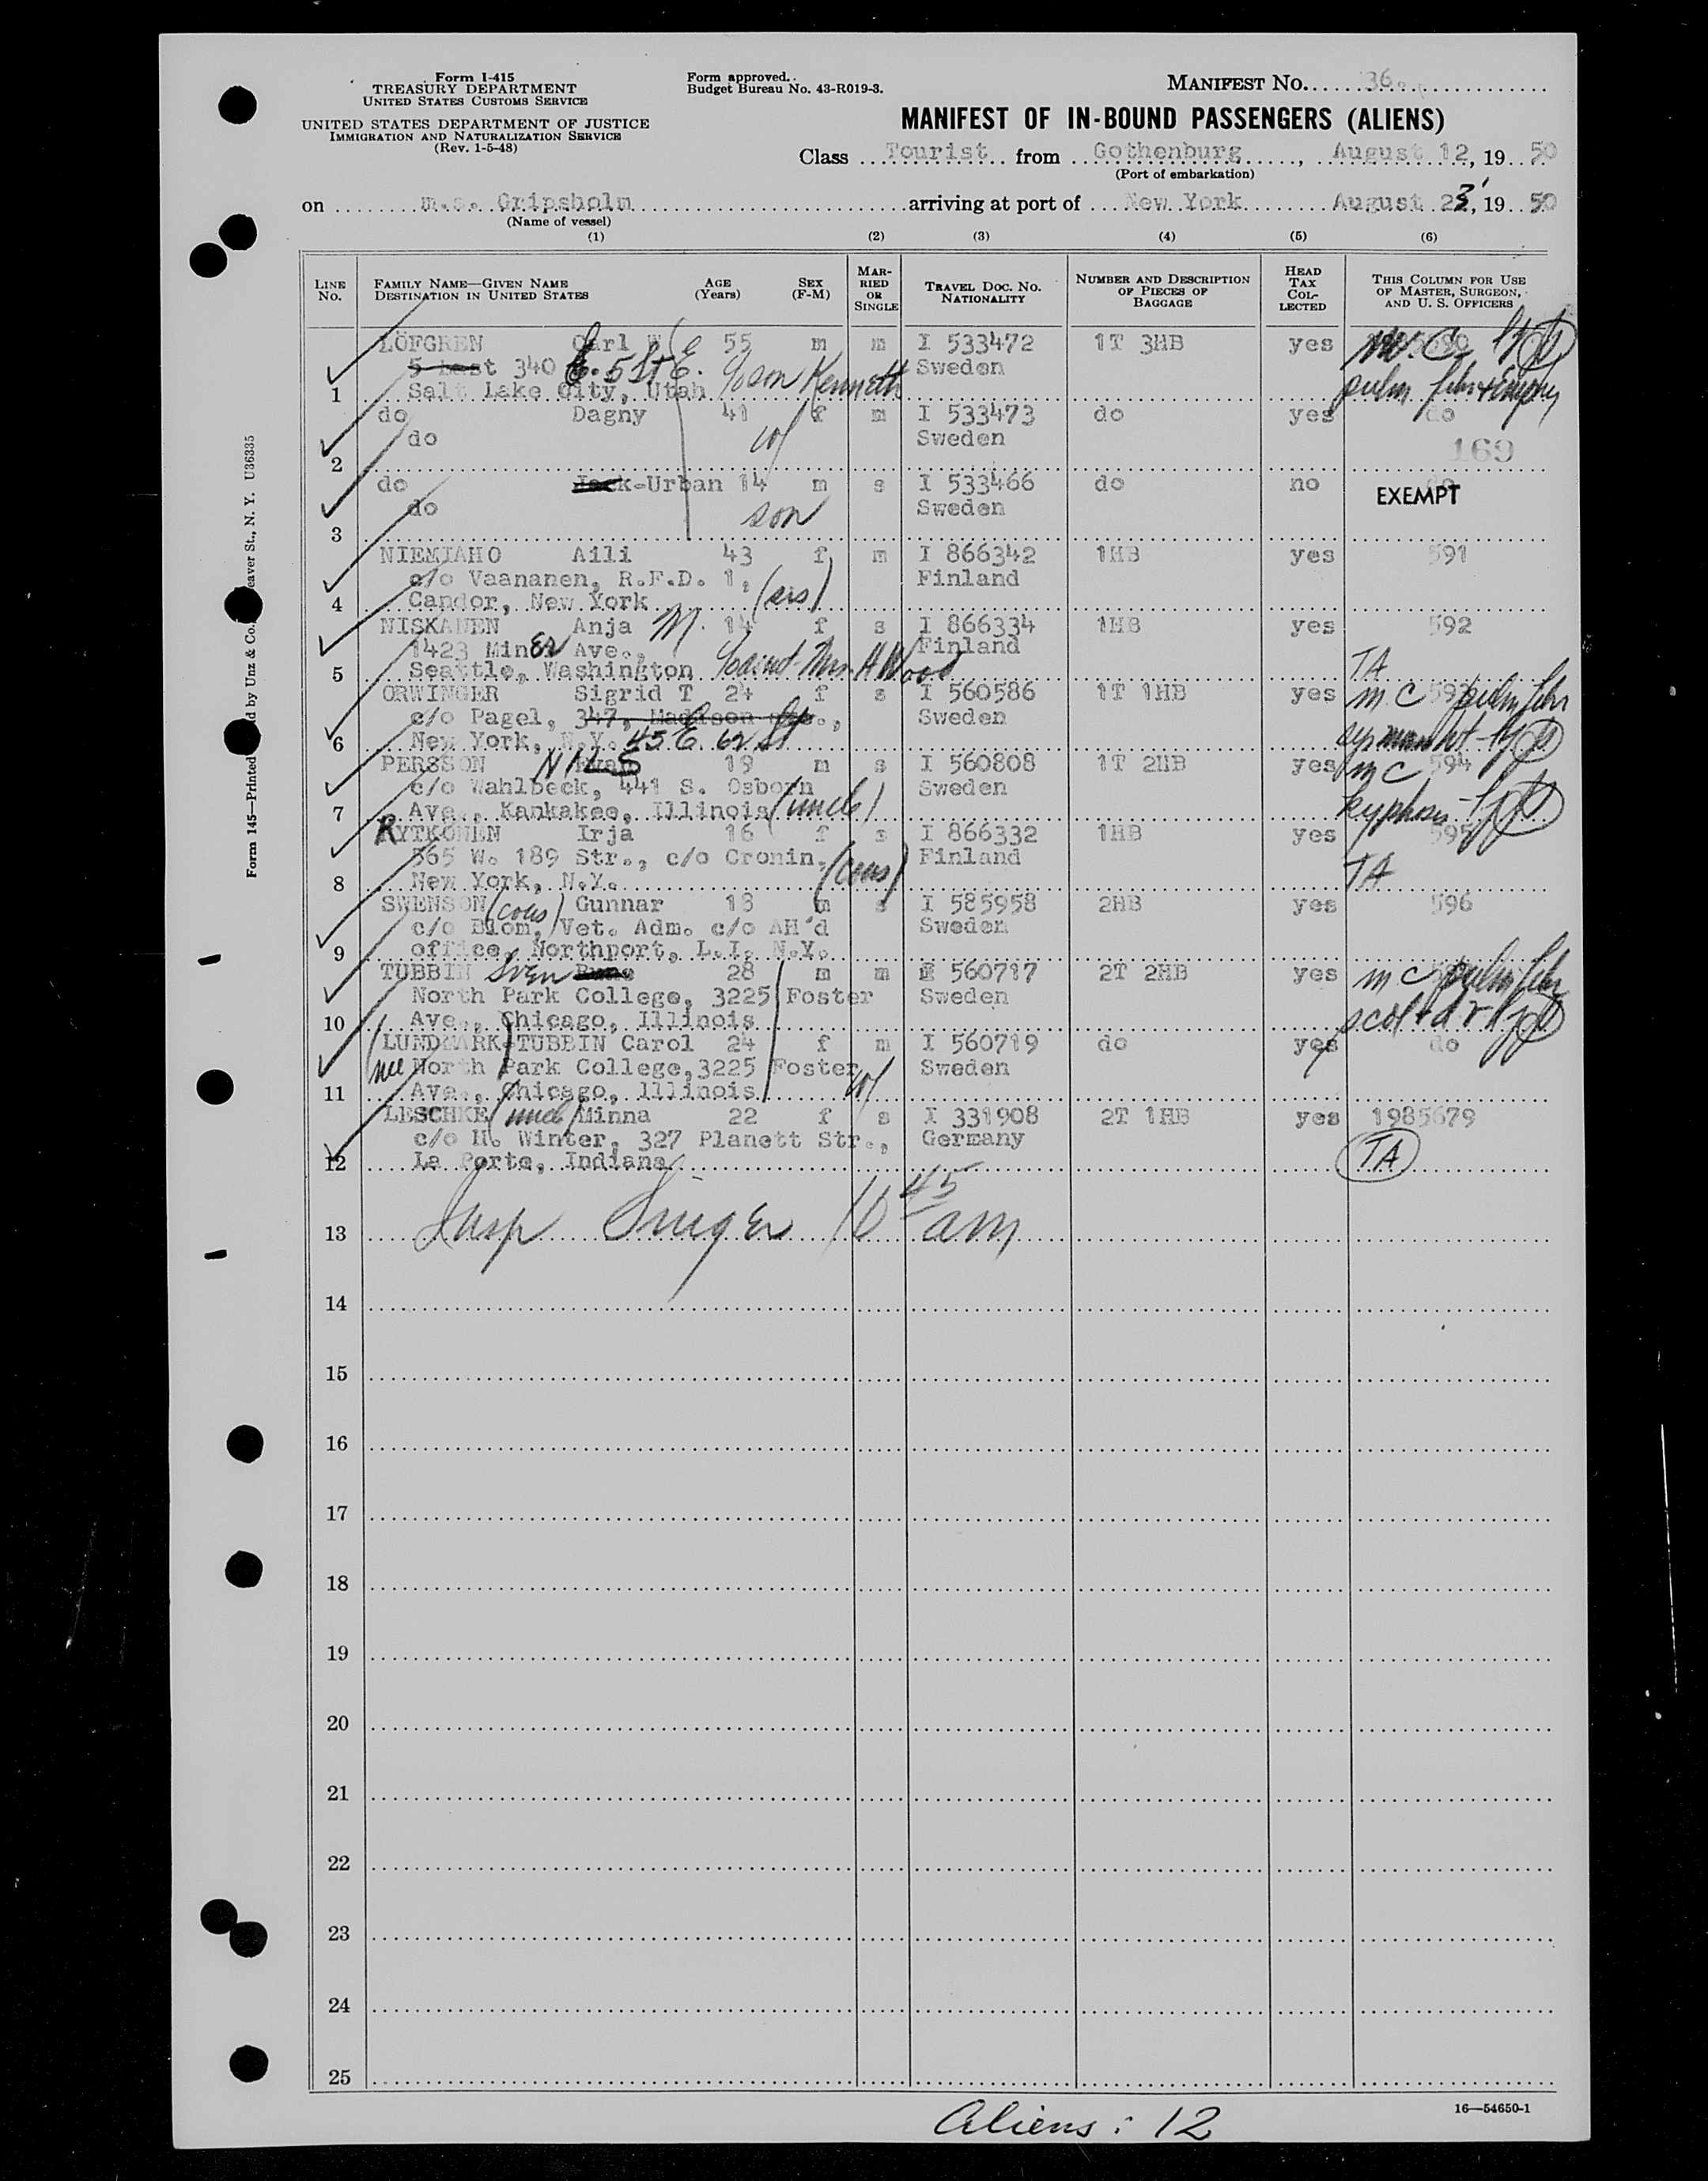 Form I-415
TREASURY DEPARTMENT
UNITED STATES CUSTOMS SERVICE
UNITED STATES DEPARTMENT OF JUSTICE
IMMIGRATION AND NATURALIZATION SERVICE
(Rev. 1-5-48)
Form approved.
Budget Bureau No. 43-R019-3.
MANIFEST NO. 36.
MANIFEST OF IN-BOUND PASSENGERS (ALIENS)
Class Tourist from Gothenburg, August 12, 19 50
(Port of embarkation)
on m.s. Gripsholm arriving at port of New York August 23, 19 50
(Name of vessel)
(1) (2) (3) (4) (5) (6)
LINE NO. FAMILY NAME—GIVEN NAME DESTINATION IN UNITED STATES AGE (Years) SEX (F-M) MARRIED OR SINGLE TRAVEL DOC. NO. NATIONALITY NUMBER AND DESCRIPTION OF PIECES OF BAGGAGE HEAD TAX COLLECTED THIS COLUMN FOR USE OF MASTER, SURGEON, AND U. S. OFFICERS
LÖFGREN Carl W 55 m m I 533472 1T 3HB yes M.C.
340 E. 5 St E. c/o son Kenneth Sweden
1 Salt Lake City, Utah pulm fibr
do Dagny 41 f m I 533473 do yes do
do wf Sweden
2 169
do Urban 14 m s I 533466 do no EXEMPT
do son Sweden
3
NIEMIAHO Aili 43 f m I 866342 1HB yes 591
c/o Vaananen, R.F.D. 1, Finland
4 Candor, New York (sis)
NISKANEN Anja M. 14 f s I 866334 1HB yes 592
1423 Miner Ave., Finland
5 Seattle, Washington c/o aunt Mrs. H Wood TA
ORWINGER Sigrid T 24 f s I 560586 1T 1HB yes mc pulm fibr
c/o Pagel, 347, Madison Sweden
6 New York, N.Y. 45 E. 62 St
PERSSON NILS 19 m s I 560808 1T 2HB yes mc 594
c/o Wahlbeck, 441 S. Osborn Sweden
7 Ave., Kankakee, Illinois (uncle) kyphosis
RYTKONEN Irja 16 f s I 866332 1HB yes 595
565 W. 189 Str., c/o Cronin. Finland
8 New York, N.Y. (cous) TA
SWENSON (cous) Gunnar 18 m s I 585958 2HB yes 596
c/o Blom, Vet. Adm. c/o AH'd Sweden
9 office, Northport, L.I. N.Y.
TUBBIN Sven 28 m m I 560717 2T 2HB yes mc pulm fibr
North Park College, 3225 Foster Sweden
10 Ave., Chicago, Illinois
(LUNDMARK) TUBBIN Carol 24 f m I 560719 do yes do
nee North Park College, 3225 Foster wf Sweden
11 Ave., Chicago, Illinois
LESCHKE (uncl) Minna 22 f s I 331908 2T 1HB yes 1985679
c/o H. Winter, 327 Planett Str., Germany
12 La Porte, Indiana TA
13 Insp Singer 10 45 am
14
15
16
17
18
19
20
21
22
23
24
25
16—54650-1
Aliens: 12
Form 145—Printed and by Unz & Co. Beaver St., N. Y. U36335